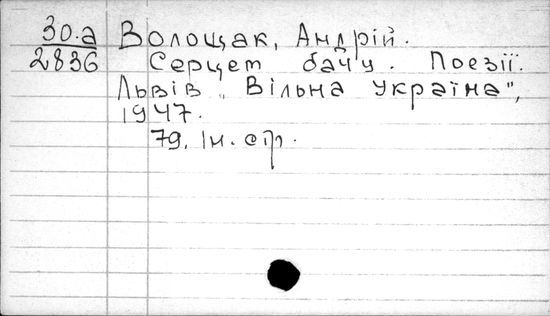 30.а
2836
Волощак, Андрій.
Серцет бачу. Поезії.
Львів „Вільна Україна",
1947.
79, Ін. стр.